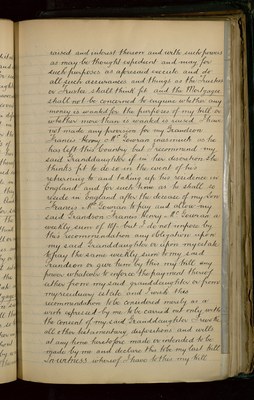 raised and interest thereon and with such powers
as may be thought expedient and may for
such purposes as aforesaid execute and do
all such assurances and things as the Trustees
or Trustee shall think fit and the Mortgagee
shall not be concerned to enquire whether any
money is wanted for the purposes of my will or
whether more than is wanted is raised I have
not made any provision for my Grandson
Francis Henry Mc Gowran inasmuch as he
has left this Country but I recommend my
said Granddaughter if in her discretion she
thinks fit to do so in the event of his
returning to and taking up his residence in
England and for such time as he shall so
reside in England after the decease of my son
Francis Mc Gowran to pay and allow my
said Grandson Francis Henry Mc Gowran a
weekly sum of but I do not impose by
this recommendation any obligation upon
my said Granddaughter or upon my estate
to pay the same weekly sum to my said
Grandson or give him by this my will any
power whatever to enforce the payment thereof
either from my said granddaughter or from
my residuary estate and I wish this
recommendation to be considered merely as a
wish expressed by me to be carried out only with
the consent of my said Granddaughter I revoke
all other testamentary dispositions and wills
at any time heretofore made or intended to be
made by me and declare this to be my last Will
In witness whereof I have to this my Will